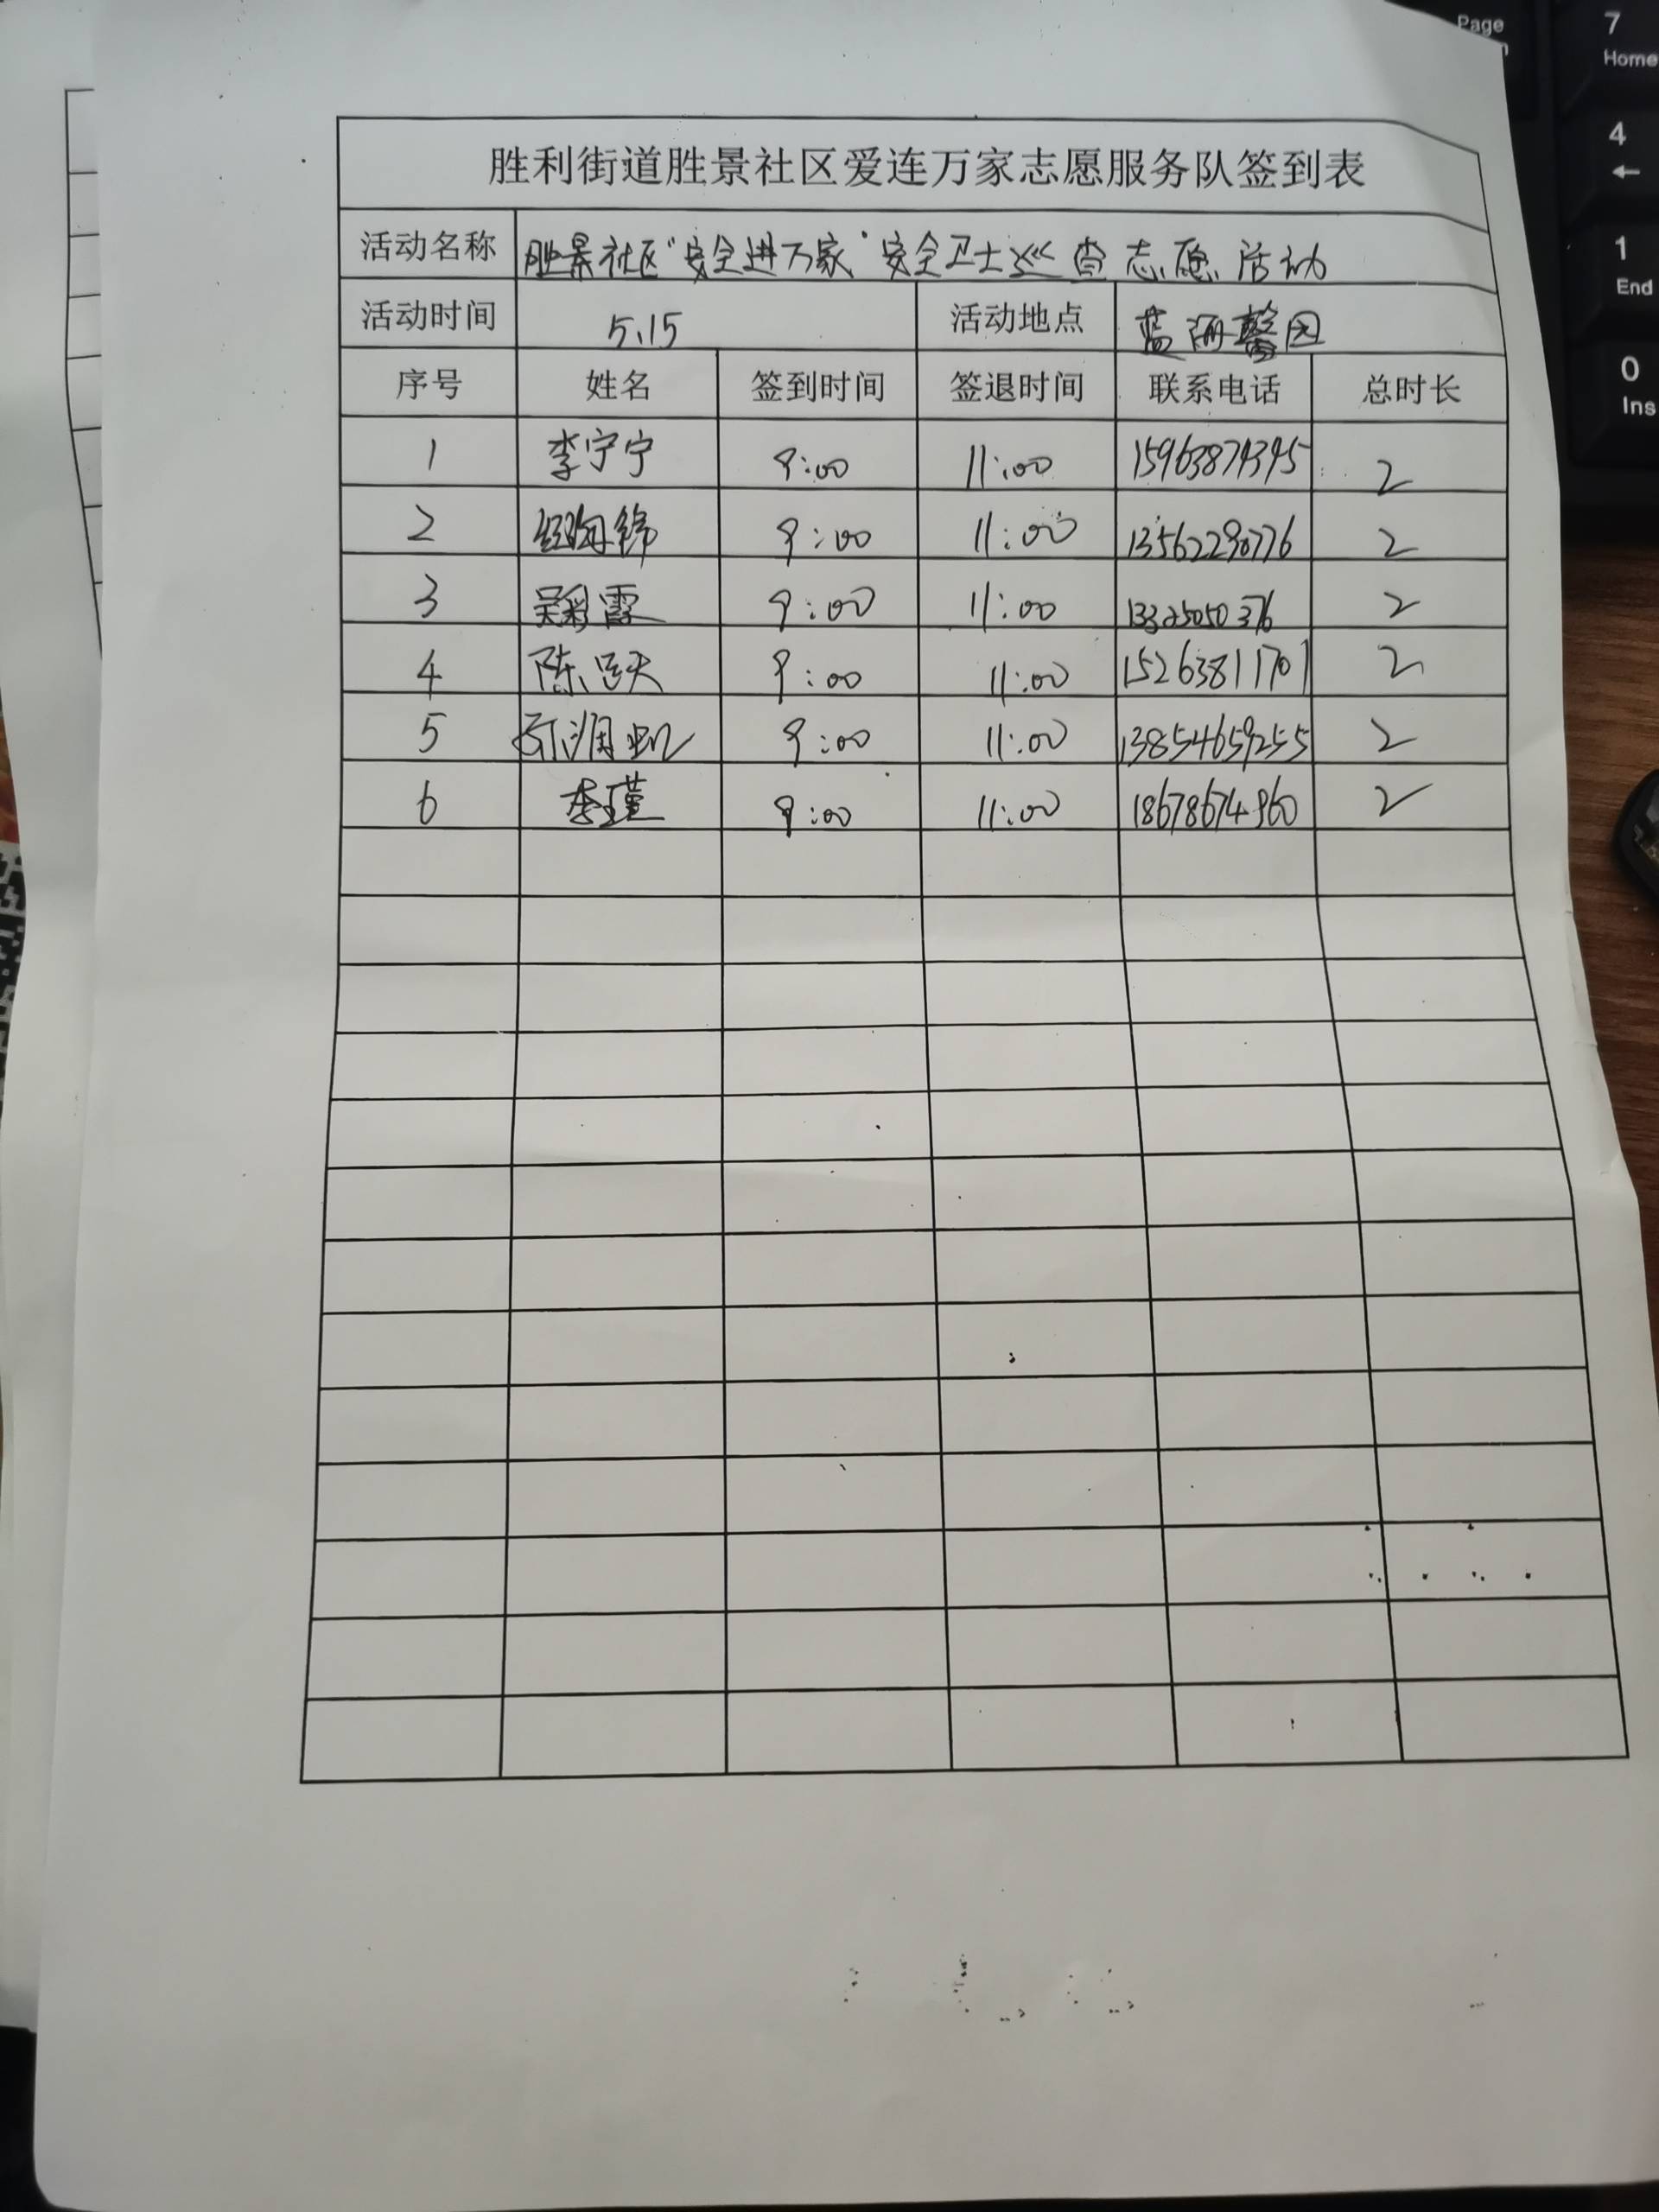 胜利街道胜景社区爱连万家志愿服务队签到表
活动名称 胜景社区"安全进万家"安全卫士巡查志愿活动
活动时间 5.15 活动地点 蓝海馨园
序号 姓名 签到时间 签退时间 联系电话 总时长
1 李宁宁 9:00 11:00 15963874345 2
2 9:00 11:00 13562290776 2
3 吴彩霞 9:00 11:00 2
4 陈 9:00 11:00 15263811701 2
5 9:00 11:00 13854659255 2
6 李瑾 9:00 11:00 18678674960 2
Page
7
Home
4
←
1
End
0
Ins